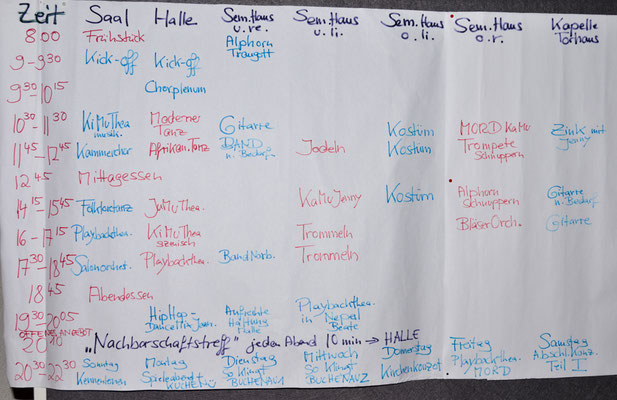 Zeit Saal Halle Sem.Haus u.re. Sem.Haus u.li. Sem.Haus o.li. Sem.Haus o.r. Kapelle Torhaus
8 00 Frühstück Alphorn Traugott
9 - 9 30 Kick-off Kick-off
9 30 - 10 15 Chorplenum
10 30 - 11 30 KiMuThea musik. Modernes Tanz Gitarre Kostüm MORD KaMu Zink mit Jenny
11 45 - 12 45 Kammerchor Afrikan.Tanz BAND n. Bedarf Jodeln Kostüm Trompete Schnuppern
12 45 Mittagessen
14 15 - 15 45 Folkloretanz JuMuThea. KaMuJenny Kostüm Alphorn schnuppern Gitarre n. Bedarf
16 - 17 15 Playbackthea. KiMuThea szenisch Trommeln BläserOrch. Gitarre
17 30 - 18 45 Salonorchest. Playbackthea. Band Norb. Trommeln
18 45 Abendessen
19 30 - 20 05 HipHop - Aufrechte Haltung Halle Playbackthea. in Nepal Beate
OFFENES ANGEBOT
20 10 „Nachbarschaftstreff" jeden Abend 10 min → HALLE
20 30 - 22 30 Sonntag Kennenlernen Montag Spieleabend KÜCHEN Dienstag So klingt BUCHENAU 1 Mittwoch So klingt BUCHENAU 2 Donnerstag Kirchenkonzert Freitag Playbackthea. MORD Samstag Abschl.Konz. Teil I